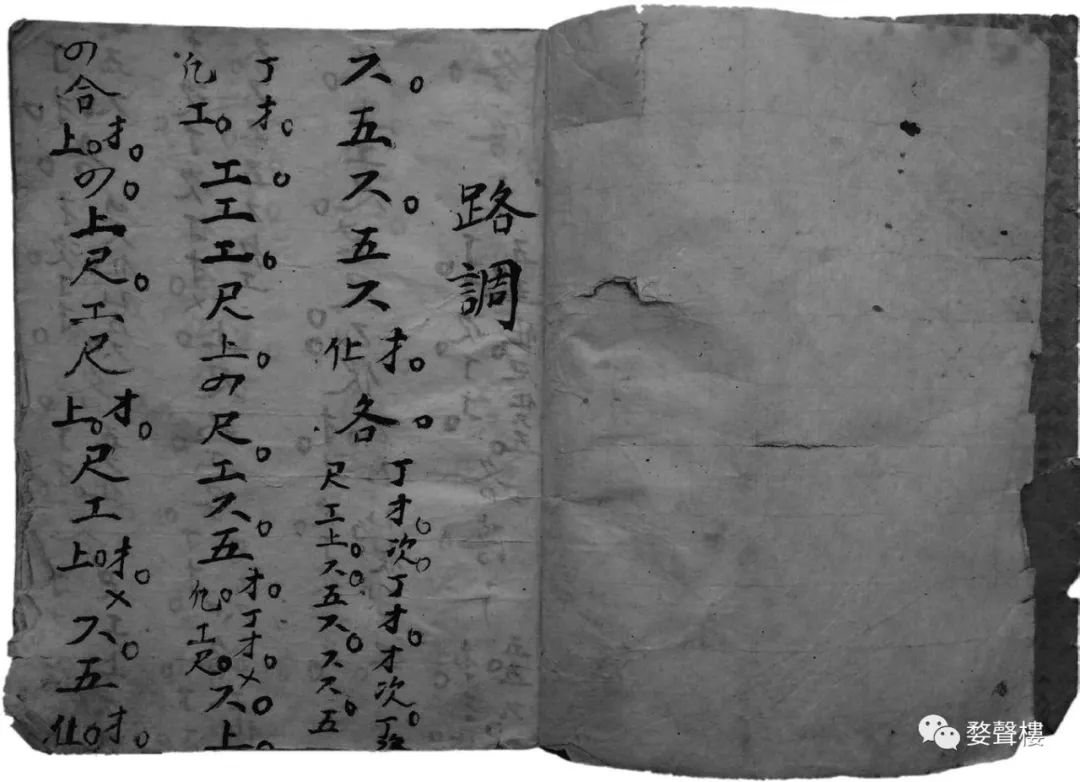 路調
六。五六。五六仩才。各。
丁才。次。丁才。才次丁。
尺工上。六。五六。六六五。
丁才。
工。
工。工工。尺上。四尺。工六。五
才。丁才。×
工尺。
六。上。
四合上。才。四。上尺。工尺上。才。尺工上。才。×六。五仩。才。
婺聲樓